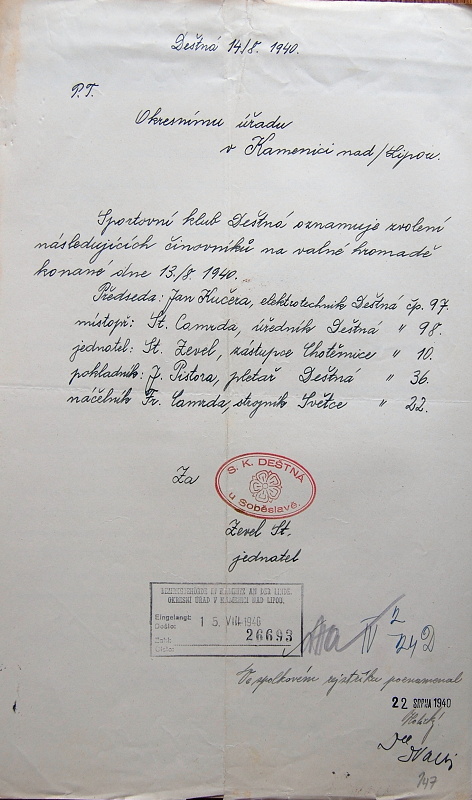 Deštná 14/8. 1940.
P.T.
Okresnímu úřadu
v Kamenici nad/Lipou.
Sportovní klub Deštná oznamuje zvolení
následujících činovníků na valné hromadě
konané dne 13./8. 1940.
Předseda: Jan Kučera, elektrotechnik Deštná čp. 97.
místopř: St. Camrda, úředník Deštná " 98.
jednatel: St. Zevel, zástupce Chotěmice " 10.
pokladník: J. Pistora, pletař Deštná " 36.
náčelník Fr. Camrda, strojník Světce " 22.
Za
S. K. DEŠTNÁ
u Soběslavě.
Zevel St.
jednatel
BEZIRKSBEHÖRDE IN KAMENITZ AN DER LINDE.
OKRESNÍ ÚŘAD V KAMENICI NAD LIPOU.
Eingelangt:
Došlo: 15. VIII 1940
Zahl:
Číslo: 26693
IV 2
24 D
Ve spolkovém rejstříku poznamenal
22 SRPNA 1940
747